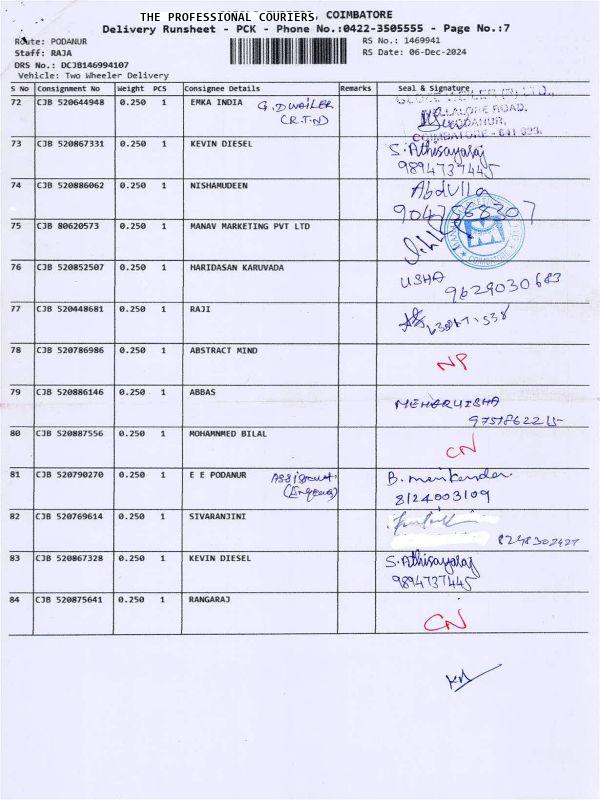 THE PROFESSIONAL COURIERS, COIMBATORE
Delivery Runsheet - PCK - Phone No.:0422-3505555 - Page No.:7
Route: PODANUR
RS No.: 1469941
Staff: RAJA
RS Date: 06-Dec-2024
DRS No.: DCJB146994107
Vehicle: Two Wheeler Delivery
S No Consignment No Weight PCS Consignee Details Remarks Seal & Signature
72 CJB 520644948 0.250 1 EMKA INDIA G.D WAILER
(R.T.N)
VELLALORE ROAD,
PODANUR,
COIMBATORE - 641 023.
73 CJB 520867331 0.250 1 KEVIN DIESEL S. Athisayaraj
9894737445
74 CJB 520886062 0.250 1 NISHAMUDEEN Abdulla
75 CJB 80620573 0.250 1 MANAV MARKETING PVT LTD
COIMBATORE
76 CJB 520852507 0.250 1 HARIDASAN KARUVADA USHA
9629030683
77 CJB 520448681 0.250 1 RAJI
78 CJB 520786986 0.250 1 ABSTRACT MIND NP
79 CJB 520886146 0.250 1 ABBAS MEHARUISHA
80 CJB 520887556 0.250 1 MOHAMNMED BILAL CN
81 CJB 520790270 0.250 1 E E PODANUR Assistant B. manikandan
8124003109
82 CJB 520769614 0.250 1 SIVARANJINI
8248302427
83 CJB 520867328 0.250 1 KEVIN DIESEL S. Athisayaraj
9894737445
84 CJB 520875641 0.250 1 RANGARAJ CN